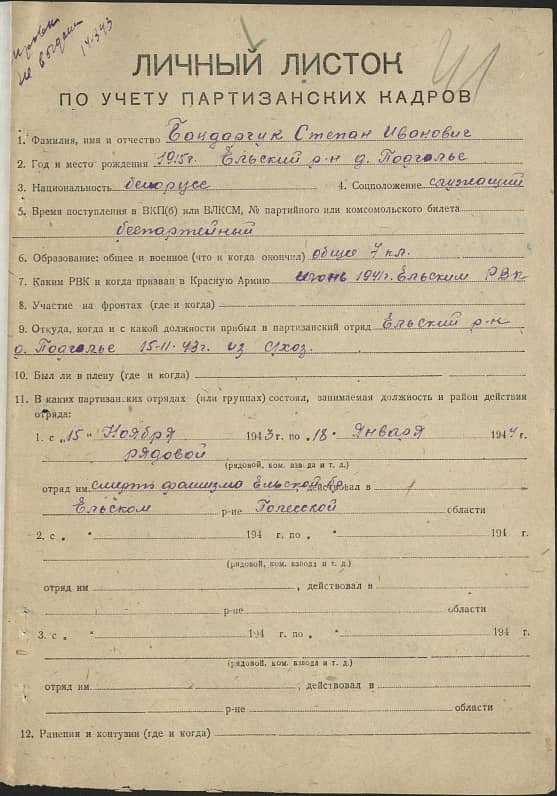 не выдан
14.3.43
41
ЛИЧНЫЙ ЛИСТОК
ПО УЧЕТУ ПАРТИЗАНСКИХ КАДРОВ
1. Фамилия, имя и отчество Бондарчик Степан Иванович
2. Год и место рождения 1915г. Ельский р-н д. Подгалье
3. Национальность белорусс 4. Соцположение служащий
5. Время поступления в ВКП(б) или ВЛКСМ, № партийного или комсомольского билета
беспартейный
6. Образование: общее и военное (что и когда окончил) общее 7 кл.
7. Каким РВК и когда призван в Красную Армию июнь 1941г. Ельским РВК
8. Участие на фронтах (где и когда)
9. Откуда, когда и с какой должности прибыл в партизанский отряд Ельский р-н
д. Подгалье 15-11-43г. из с/хоз.
10. Был ли в плену (где и когда)
11. В каких партизанских отрядах (или группах) состоял, занимаемая должность и район действия
отряда:
1. с „15" Ноября 1943г. по „18" Января 1944г.
рядовой
(рядовой, ком. взвода и т. д.)
отряд им. смерть фашизму Ельской бр., действовал в
Ельском р-не Полесской области
2. с „ " 194 г. по „ " 194 г.
(рядовой, ком. взвода и т. д.)
отряд им , действовал в
р-не области
3. с „ " 194 г. по „ " 194 г.
(рядовой, ком. взвода и т. д.)
отряд им. , действовал в
р-не области
12. Ранения и контузии (где и когда)